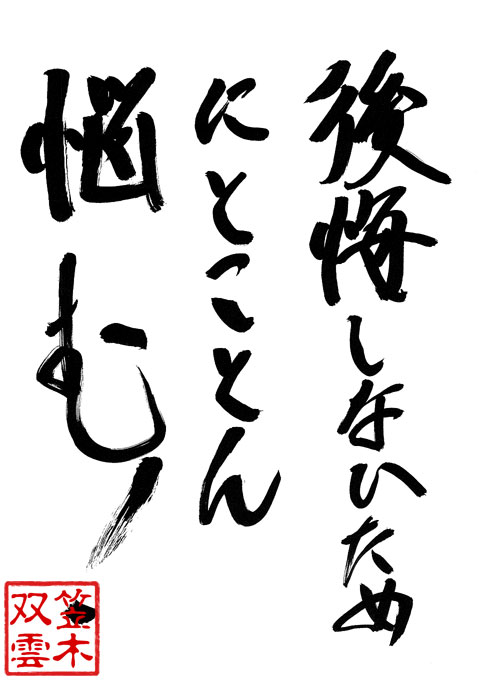 後悔しないため
にとことん
悩む！
笠木
双雲